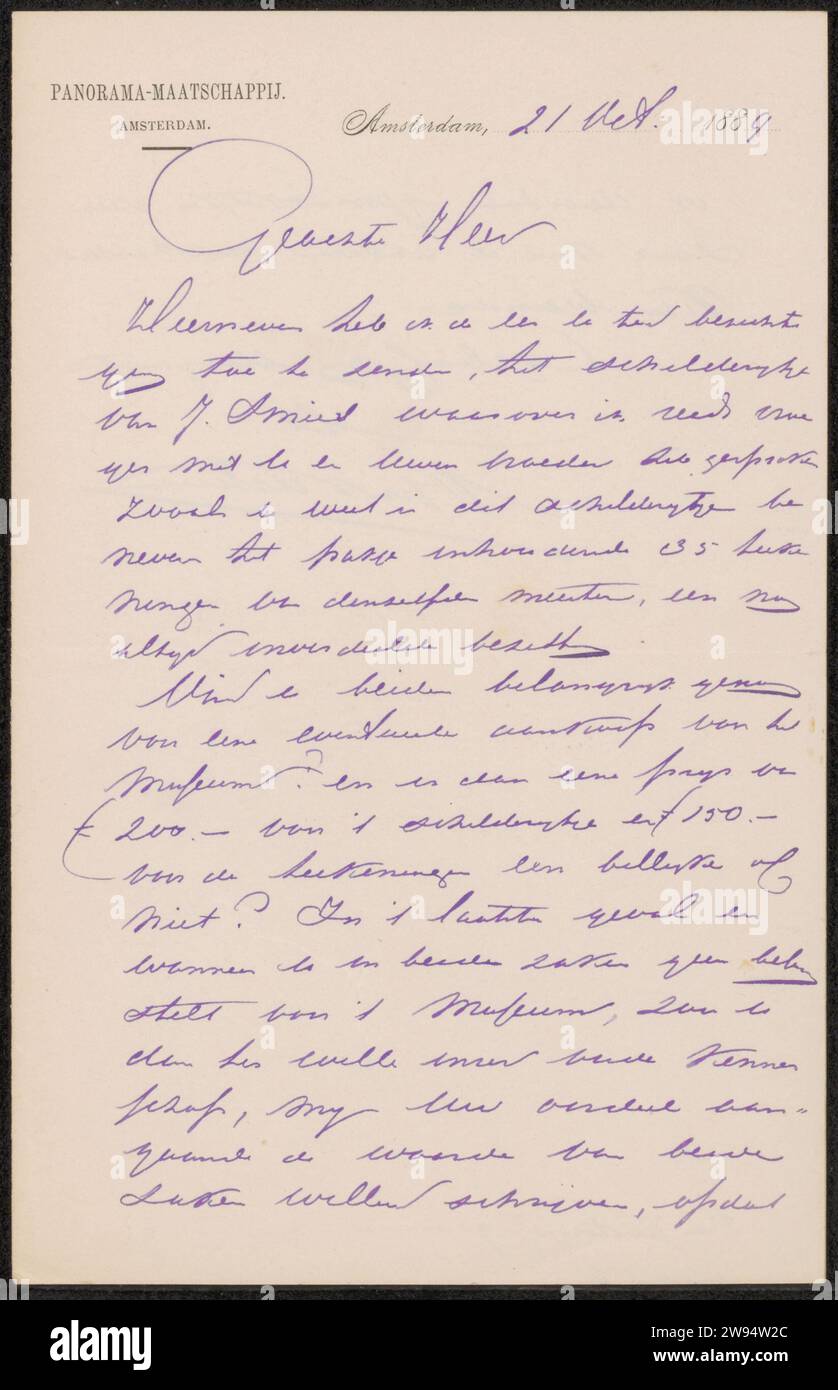 PANORAMA-MAATSCHAPPIJ.
AMSTERDAM.
Amsterdam, 21 Oct. 1889
Geachte Heer
Hiernevens heb ik de eer U ter bezichti
ging toe te zenden, het schilderijtje
van J. Smies waarover ik reeds vroe
ger met U en Uwen broeder heb gesproken
Zooals U weet is dit schilderijtje be
nevens het pakje inhoudende 35 teeke
ningen van denzelfden meester, een nog
altijd onverdeelde bezitting
Vind U beiden belangrijk genoeg
voor eene eventueele aankoop voor het
Museum? en is dan eene prijs van
f 200.- voor 't schilderijtje en f 150.-
voor de teekeningen een billijke of
niet? In 't laatste geval en
wanneer U in beide zaken geen belang
stelt voor 't Museum, zou U
dan ter wille onzer oude kennis
schap, mij Uw oordeel aan-
gaande de waarde van beide
zaken willen schrijven, opdat
alamy
www.alamy.com
Image ID: 2W94W2C